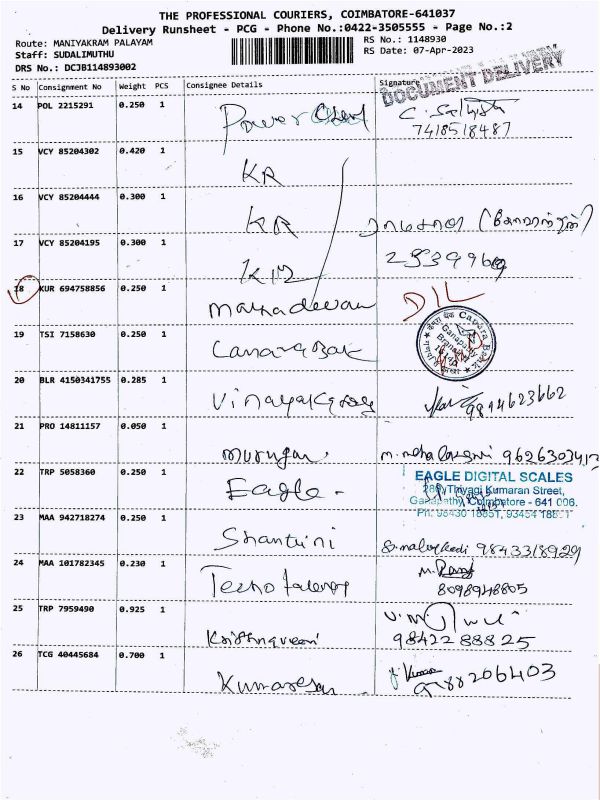 THE PROFESSIONAL COURIERS, COIMBATORE-641037
Delivery Runsheet - PCG - Phone No.:0422-3505555 - Page No.:2
Route: MANIYAKRAM PALAYAM
RS No.: 1148930
Staff: SUDALIMUTHU
RS Date: 07-Apr-2023
DRS No.: DCJB114893002
DOCUMENT DELIVERY
S No Consignment No Weight PCS Consignee Details Signature
14 POL 2215291 0.250 1 Power
7418518487
15 VCY 85204302 0.420 1 KR
16 VCY 85204444 0.300 1 KR
17 VCY 85204195 0.300 1 KR
2539960
18 KUR 694758856 0.250 1 Mahadevan
D/L
19 TSI 7158630 0.250 1 Canara Bak
Canara Bank
20 BLR 4150341755 0.285 1 Vinayak
9894623662
21 PRO 14811157 0.050 1 Murugan
9626303412
22 TRP 5058360 0.250 1 Eagle -
EAGLE DIGITAL SCALES
Thiyagi Kumaran Street,
Ganapathy Coimbatore - 641 006.
23 MAA 942718274 0.250 1 Shantini
9843318929
24 MAA 101782345 0.230 1 Techo
8098948805
25 TRP 7959490 0.925 1 Krishnaveni
9842288825
26 TCG 40445684 0.700 1 Kumaresan
J. Kumar
9788206403